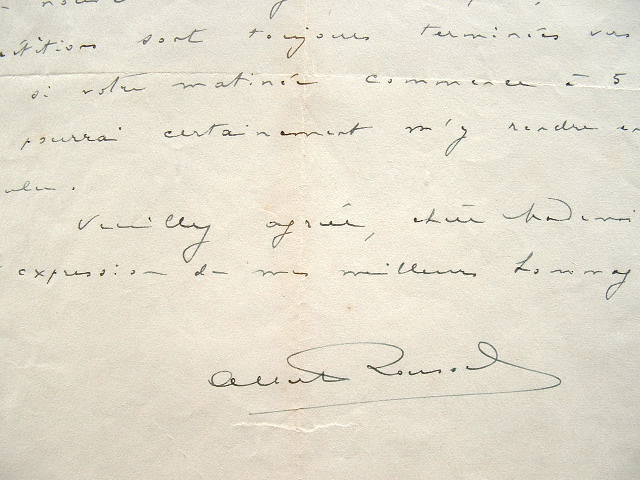 étitions sont toujours terminées vers
si votre matinée commence à 5
pourrai certainement m'y rendre en
ulu.
Veuillez agréer, chère Mademoi
expression de mes meilleurs hommag
Albert Roussel